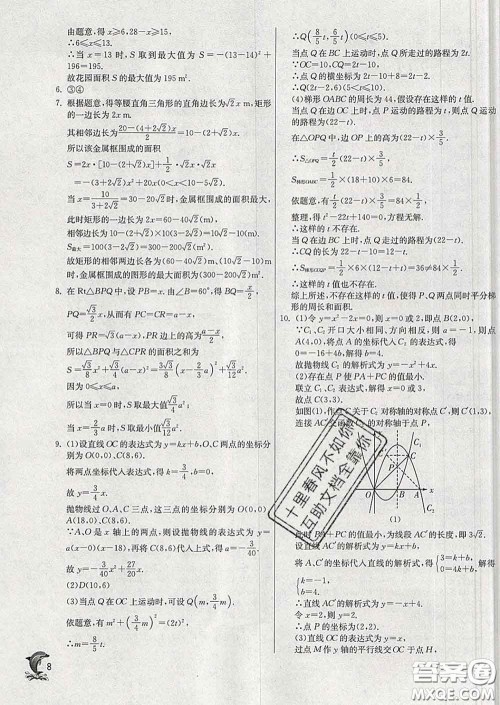 由题意,得x≥6,28-x≥15,
∴6≤x≤13.
∴当 x=13 时,S 取到最大值为 S=-(13-14)²+
196=195.
故花园面积 S 的最大值为 195 m².
6. ③④
7. 根据题意,得等腰直角三角形的直角边长为√2x m,矩形
的一边长为2x m.
其相邻边长为(20-(4+2√2)x)/2=10-(2+√2)x(m),
所以该金属框围成的面积
S=2x·[10-(2+√2)x]+1/2·√2x·√2x
=-(3+2√2)x²+20x(0<x<10-5√2).
当 x=10/(3+2√2)=30-20√2时,金属框围成的面积最大,
此时矩形的一边长为 2x=60-40√2(m),
相邻边长为10-(2+√2)x=10√2-10(m),
S最大=100(3-2√2)=300-200√2(m²).
故矩形的相邻两边长各为(60-40√2)m,(10√2-10)
m时,金属框围成的图形的最大面积为(300-200√2)m².
8. 在 Rt△BPQ 中,设 PB=x. 由∠B=60°,得 BQ=x/2,
PQ=√3/2x,从而有 PC=CR=a-x,
可得 PR=√3(a-x),PR 边上的高为(a-x)/2,
所以△BPQ与△CPR的面积之和为
S=√3/8x²+√3/4(a-x)²=3√3/8(x-2/3a)²+√3/12a².
因为0≤x≤a,
所以当 x=0 时,S取最大值√3/4a²;
当 x=2/3a 时,S取最小值√3/12a².
9. (1)设直线 OC 的表达式为 y=kx+b,O,C 两点的坐标分
别为O(0,0),C(8,6),
将两点坐标代入表达式,得 k=3/4,b=0,
故 y=3/4x.
抛物线过O,A,C三点,这三点的坐标分别为O(0,0),
A(18,0),C(8,6).
∴A,O是 x 轴上的两点,则设抛物线的表达式为 y=
a(x-0)(x-18),再将C(8,6)代入上式,得a=-3/40,
故 y=-3/40x²+27/20x.
(2)D(10,6)
(3)当点 Q 在 OC 上运动时,可设 Q(m,3/4m),
依题意,有 m²+(3/4m)²=(2t)²,
∴m=8/5t,
8
∴Q(8/5t,6/5t)(0≤t≤5),
当点 Q 在 CB 上运动时,点 Q 所走过的路程为 2t.
∵OC=10,∴CQ=2t-10.
∴Q 点的横坐标为 2t-10+8=2t-2.
∴Q(2t-2,6)(5<t≤10).
(4)梯形 OABC 的周长为 44,假设存在这样的 t 值.
当点 Q 在 OC 上时,点 P 运动的路程为 t,则点 Q 运动
的路程为(22-t),
在△OPQ 中,边 OP 上的高为(22-t)×3/5,
∴S△OPQ=1/2t(22-t)×3/5,
S梯形OABC=1/2(18+10)×6=84.
依题意,有1/2t(22-t)×3/5=84×1/2,
整理,得 t²-22t+140=0,方程无解.
∴这样的 t不存在.
当点 Q 在 BC 上时,点 Q 走过的路程为(22-t),
∴CQ=22-t-10=12-t.
∴这样的 t 值也不存在.
综上所述,不存在这样的 t 值,使得 P,Q 两点同时平分梯
形的周长和面积.
10. (1)令 y=x²-2x=0,则点 B(2,0),
∵C₁、C₂ 开口大小相同、方向相反,则 a=-1,
点A(4,0),将点 A 的坐标代入 C₂ 的表达式,得
0=-16+4b,解得b=4.
故抛物线 C₂ 的解析式为 y=-x²+4x.
(2)存在点 P 使 PA+PC 的值最小.
联立 C₁、C₂ 表达式,解得 x=0 或 3,
故点 C(3,3).
如图(1),作点 C 关于 C₂ 对称轴的对称点 C'(1,3),
(1)
十里春风不如你
互助文档全靠你
此时PA+PC 的值最小,为线段 AC' 的长度,即 3√2.
将 A、C' 的坐标代入直线的解析式,得{3=k+b,0=4k+b,解得
{k=-1,b=4,
∴直线 AC' 的解析式为 y=-x+4.
∴点 P 的坐标为(2,2).
(3)直线 OC 的表达式为 y=x,
过点 M 作 y 轴的平行线交 OC 于点 H,
答案圈
MXQE.COM